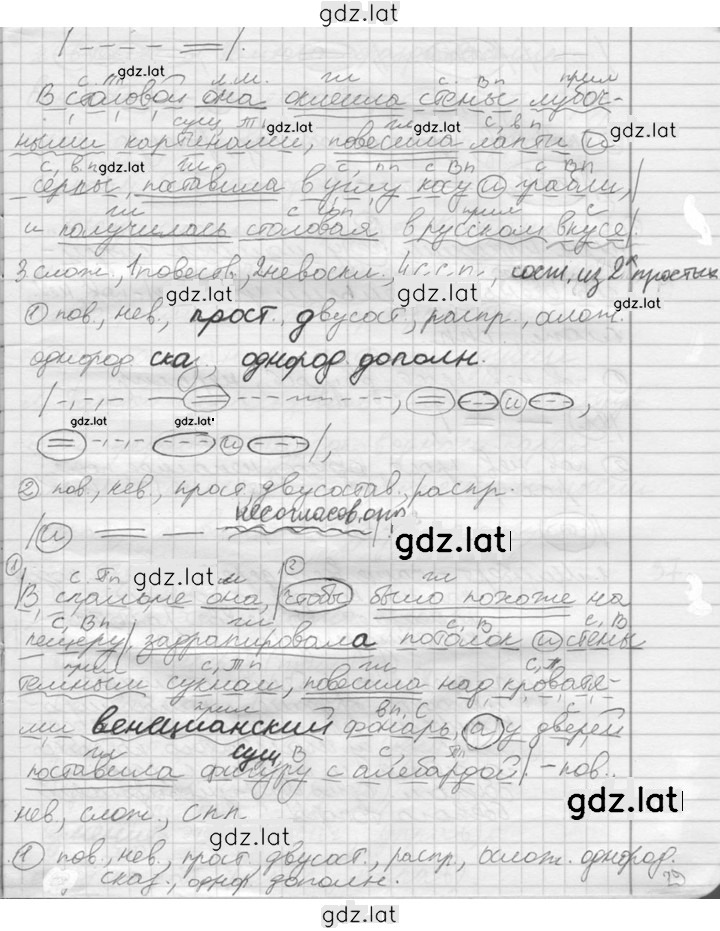 gdz.lat
с Тп л.м. гл с. Вп прил
В столовой она оклеила стены лубоч-
сущ Т. гл с, в п
ными картинами, повесила лапти и
с, в.п гл с, пп с Вп с Вп
серпы, поставила в углу косу и грабли,/
гл с Вп прил с
и получилась столовая в русском вкусе/.
3 слож, 1 повеств, 2 невоскл., 4 с.с.п., сост. из 2х простых
gdz.lat
① пов., нев., прост., двусост., распр., ослож.
однород ска, однород. дополн.
и
gdz.lat gdz.lat
и
② пов., нев., прост, двусостав., распр.
несогласов.опр
и
gdz.lat
① с Пп м ② гл
В спальне она, чтобы было похоже на
gdz.lat
с, Вп гл с, В с, В
пещеру, задрапировала потолок и стены
прил с, Т п гл с, Т.
темным сукном, повесила над кроватя-
прил вп, С С
ми венецианский фонарь, а у дверей
гл сущ В с Т.
поставила фигуру с алебардой. - пов.
gdz.lat
нев, слож., Спп.
gdz.lat
① пов., нев., прост двусост., распр., ослож. однород.
сказ., однор дополн.
gdz.lat